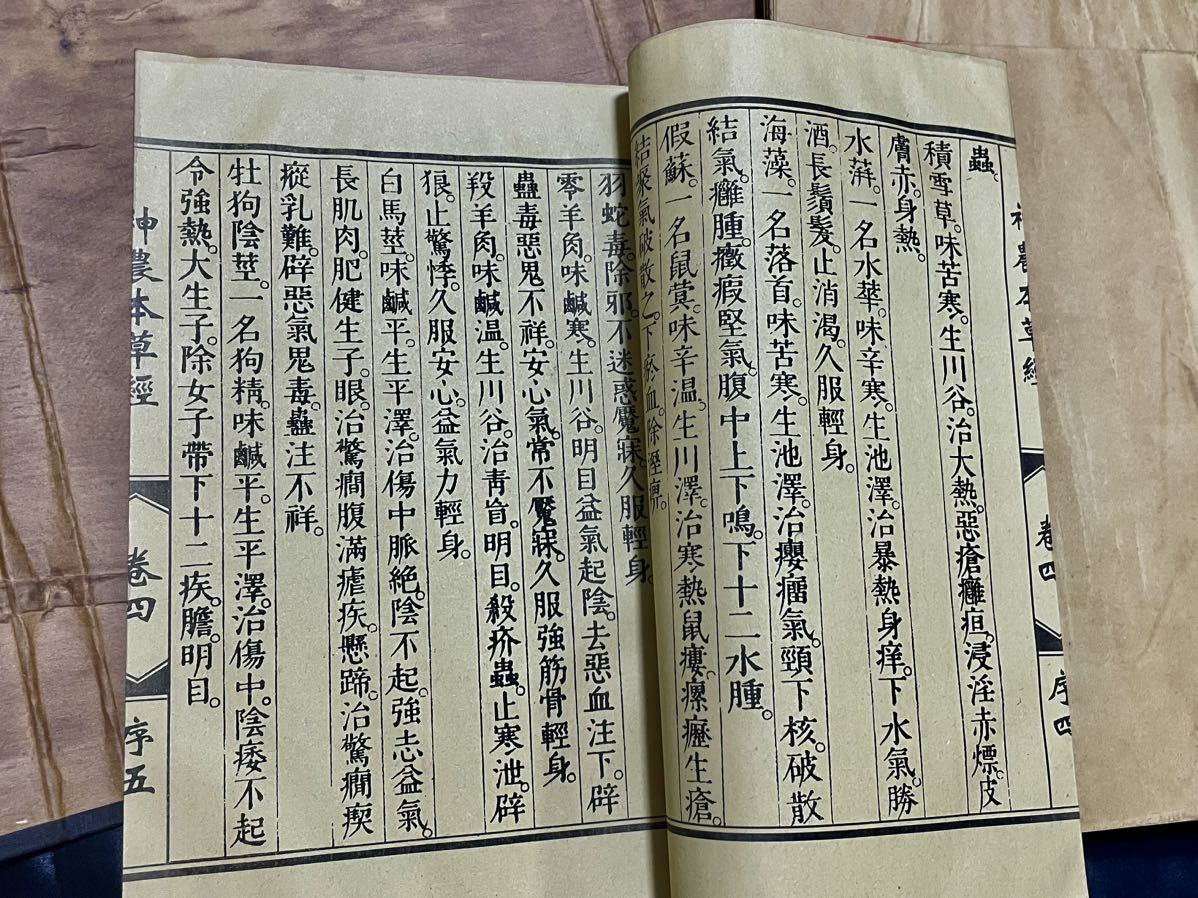 神農本草經 卷四 序四
蟲。
積雪草。味苦寒。生川谷。治大熱。惡瘡癰疽。浸淫赤熛。皮
膚赤。身熱。
水蓱。一名水華。味辛寒。生池澤。治暴熱身痒。下水氣。勝
酒。長鬚髮。止消渴。久服輕身。
海藻。一名落首。味苦寒。生池澤。治癭瘤氣。頸下核。破散
結氣。癰腫。癥瘕堅氣。腹中上下鳴。下十二水腫。
假蘇。一名鼠蓂。味辛温。生川澤。治寒熱鼠瘻。瘰癧生瘡。
結聚氣破散之。下瘀血。除溼痹。
羽蛇毒。除邪。不迷惑魘寐。久服輕身。
零羊肉。味鹹寒。生川谷。明目益氣起陰。去惡血注下。辟
蠱毒惡鬼不祥。安心氣。常不魘寐。久服強筋骨輕身。
羖羊肉。味鹹温。生川谷。治青盲。明目。殺疥蟲。止寒泄。辟
狼。止驚悸。久服安心益氣力輕身。
白馬莖。味鹹平。生平澤。治傷中脈絕。陰不起。強志益氣。
長肌肉。肥健生子。眼。治驚癇腹滿瘧疾。懸蹄。治驚癎瘈
瘲乳難。辟惡氣鬼毒。蠱注不祥。
牡狗陰莖。一名狗精。味鹹平。生平澤。治傷中。陰痿不起
令強熱。大生子。除女子帶下十二疾。膽。明目。
神農本草經 卷四 序五